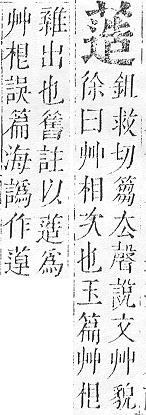 鉏救切篘厺聲說文艸貌
徐曰艸相次也玉篇艸相
雜出也舊註以為
艸相誤篇海譌作